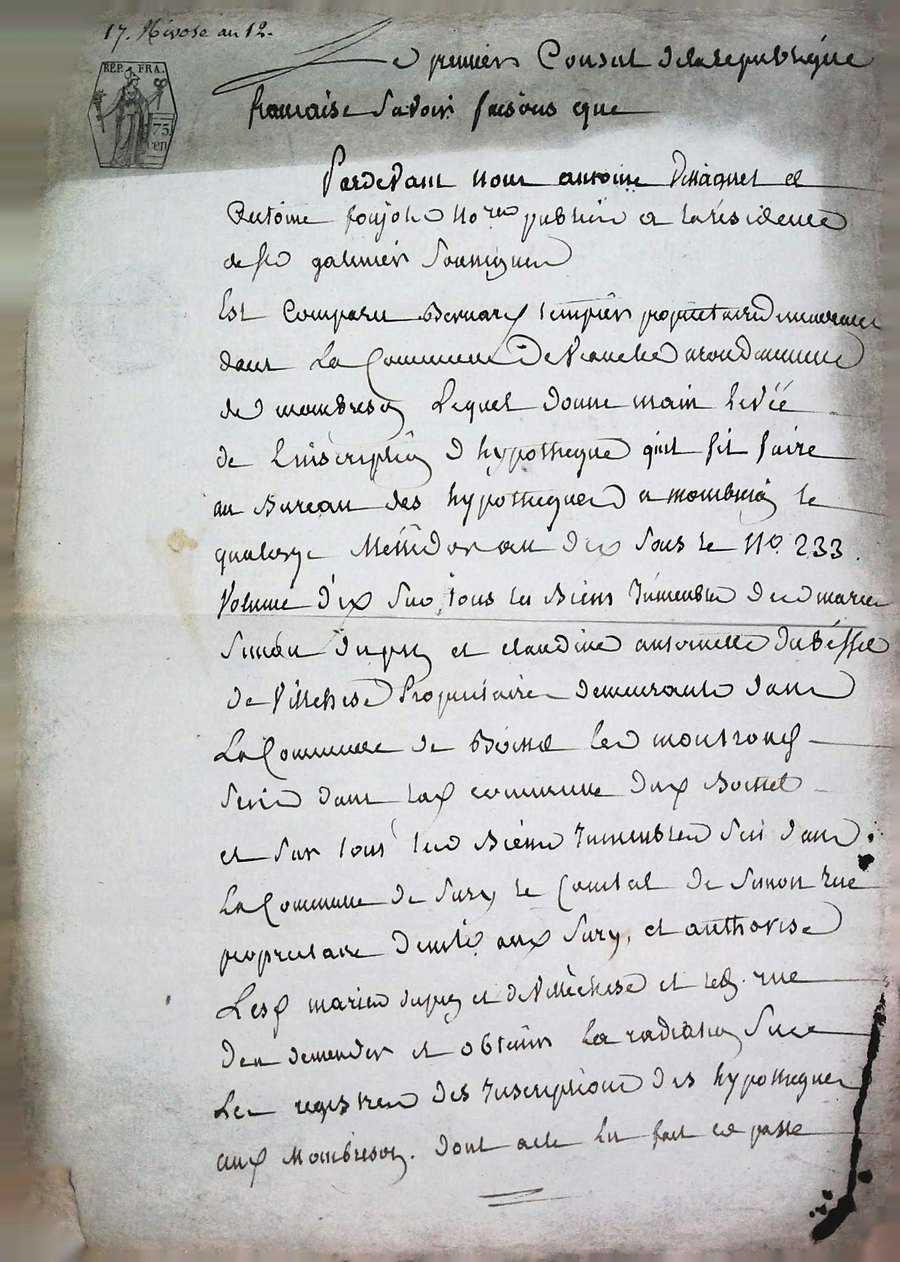 17. Nivose an 12.
REP. FRA.
75
en
Le premier Consul de la republique
francaise savoir faisons que
Pardevant nous antoine et
Antoine not.res publics a la résidence
de st galmier soussignes
Est Comparu Bernard propriétaire demeurant
dans La Commune De arondissement
de mombrison Lequel donne main levée
de Linscription d hypotheque quil fit faire
au Bureau des hypotheques a mombrison le
quatorze Messidor an dix sous le No. 233.
Volume dix sur tous les Biens immeubles des maries
Simon dupuy et claudine antoinette
de Villechese Propriétaires demeurants dans
La Commune de Boisset les montrond
situés dans lad commune dud Boisset
et sur tous les Biens immeubles sis dans
La Commune de Sury le Comtal de Simon rue
propriétaire dud. Sury, et authorise
Lesd maries dupuy et de Villechese et led. rue
den demander et obtenir la radiation sur
Les registres des inscriptions des hypotheques
aud Mombrison. dont acte lu fait et passé